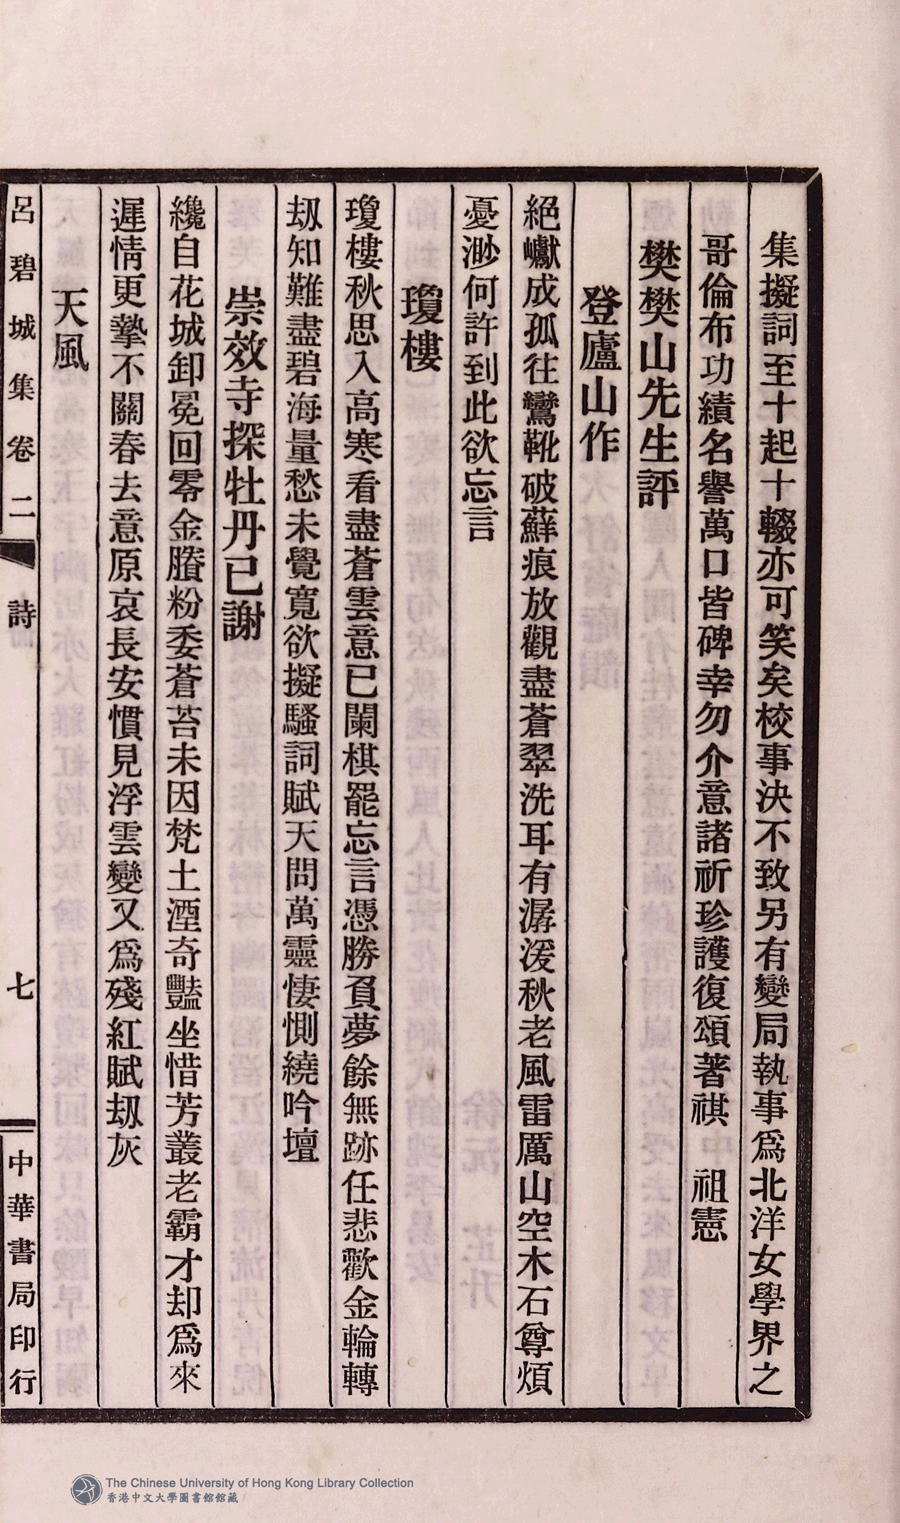 集擬詞至十起十輟亦可笑矣校事決不致另有變局執事爲北洋女學界之
哥倫布功績名譽萬口皆碑幸勿介意諸祈珍護復頌著祺　祖憲
樊樊山先生評
登廬山作
絕巘成孤往鸞靴破蘚痕放觀盡蒼翠洗耳有潺湲秋老風雷厲山空木石尊煩
憂渺何許到此欲忘言
瓊樓
瓊樓秋思入高寒看盡蒼雲意已闌棋罷忘言憑勝負夢餘無跡任悲歡金輪轉
劫知難盡碧海量愁未覺寬欲擬騷詞賦天問萬靈悽惻繞吟壇
崇效寺探牡丹已謝
纔自花城卸冕回零金賸粉委蒼苔未因梵土湮奇豔坐惜芳叢老霸才却爲來
遲情更摯不關春去意原哀長安慣見浮雲變又爲殘紅賦刼灰
天風
呂碧城集卷二　詩　七　中華書局印行
The Chinese University of Hong Kong Library Collection
香港中文大學圖書館館藏